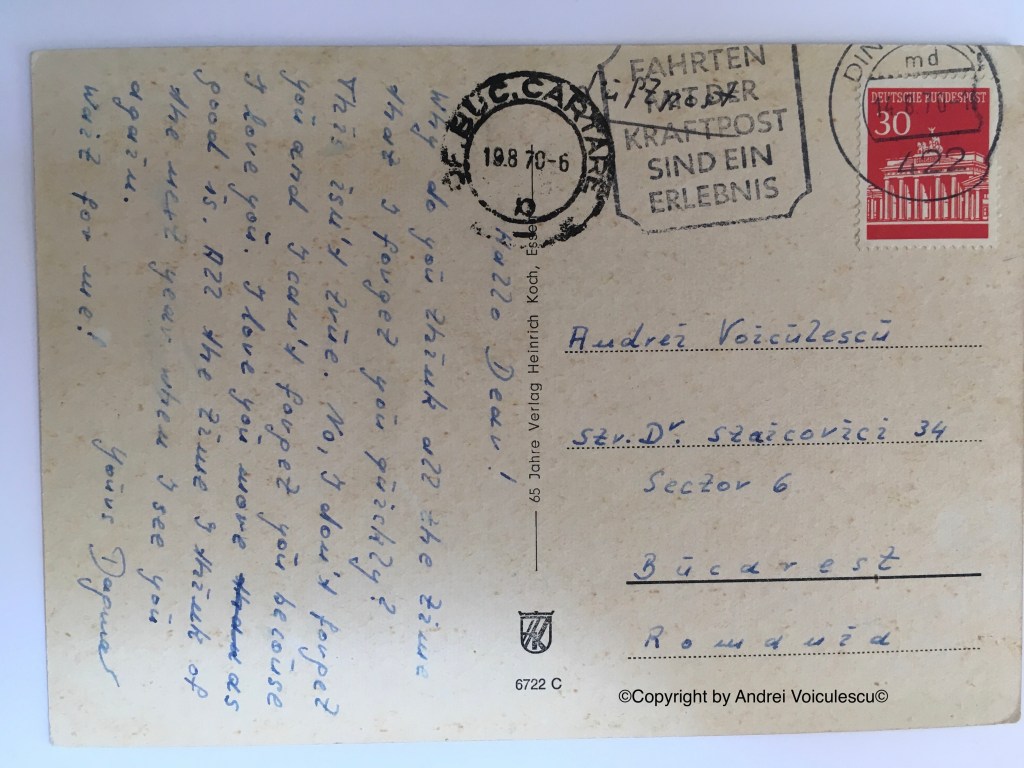 Hallo Dear!
Why do you think all the time
that I forget you quickly?
This isn't true. No, I don't forget
you and I can't forget you becouse
I love you. I love you more than as
good is. All the time I think of
the next year when I see you
again.
Wait for me!
Yours Dagmar
65 Jahre Verlag Heinrich Koch, Essen
6722 C
BUC. CARTARE
19.8 70-6
FAHRTEN
MIT DER
KRAFTPOST
SIND EIN
ERLEBNIS
DIN
md
422
DEUTSCHE BUNDESPOST
30
Andrei Voiculescu
Str. Dr. Staicovici 34
Sector 6
Bucarest
Romania
©Copyright by Andrei Voiculescu©